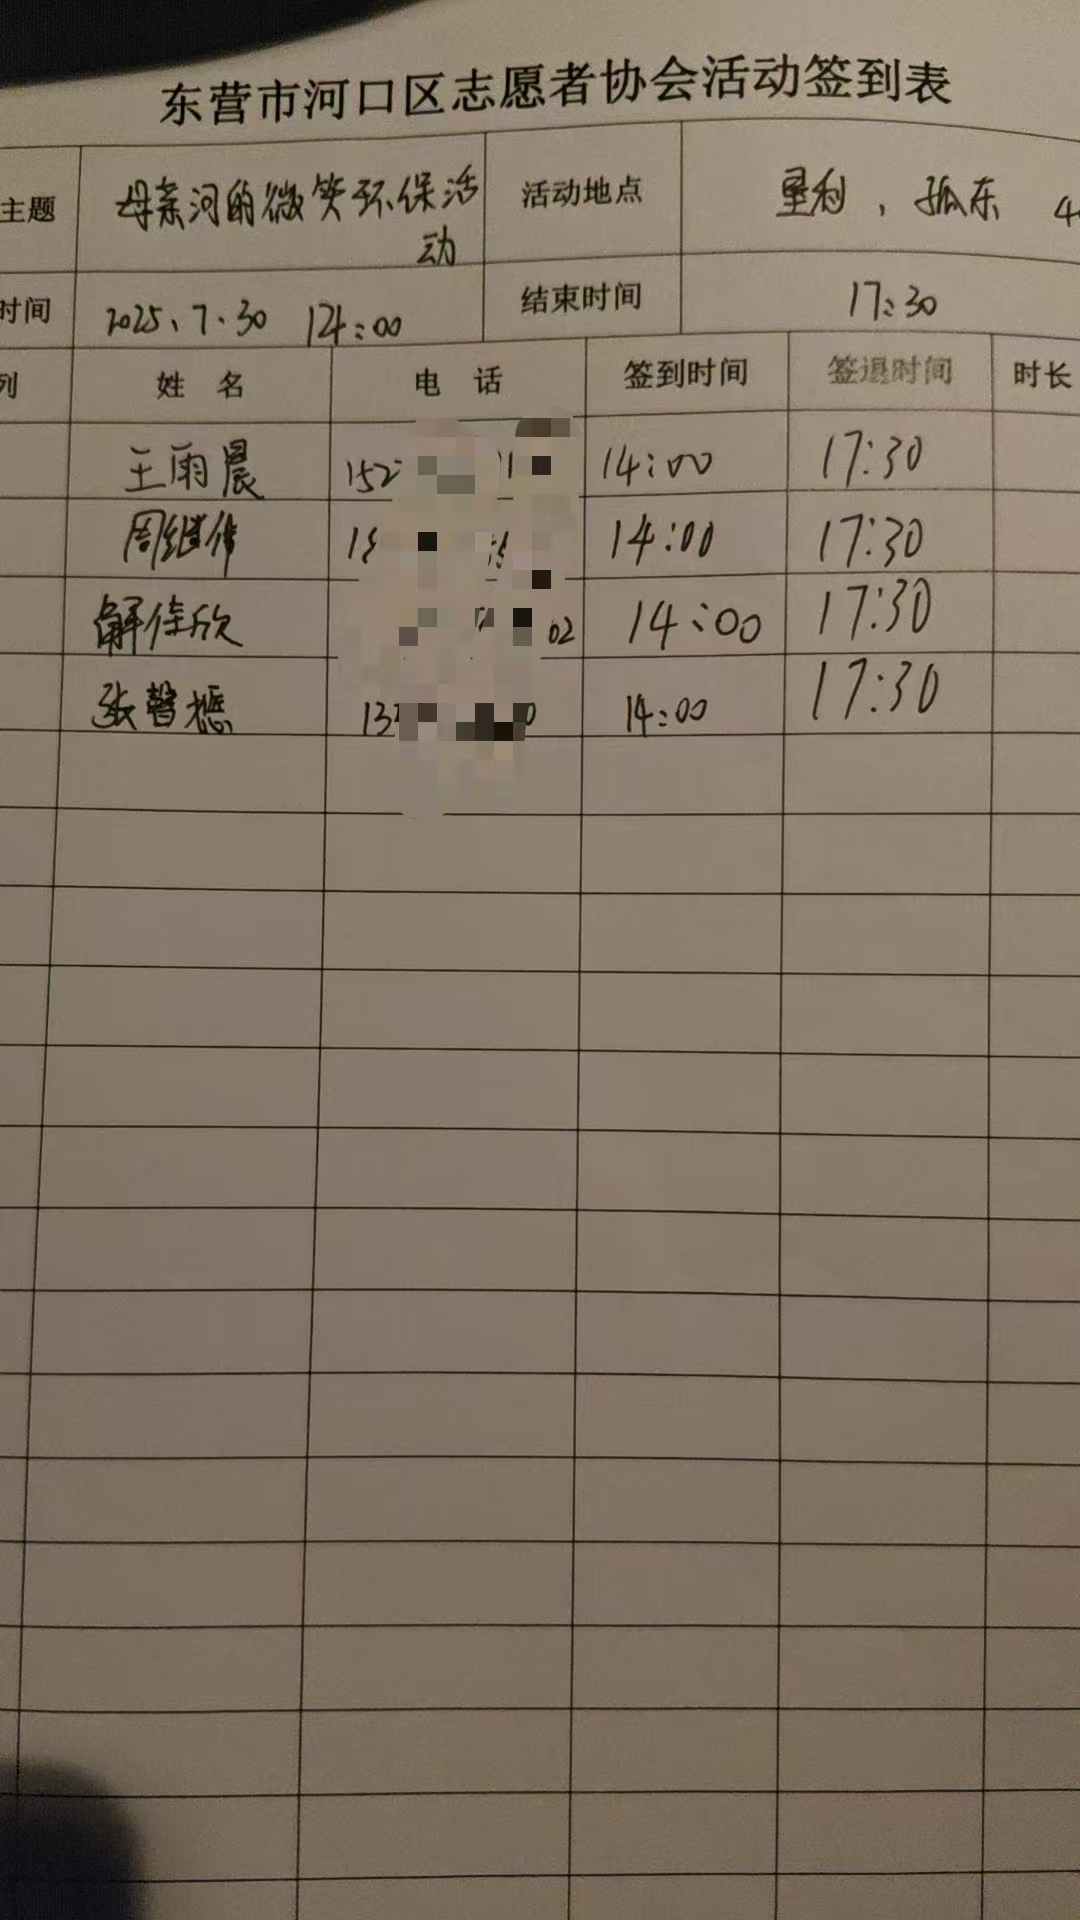 东营市河口区志愿者协会活动签到表
主题 母亲河的微笑环保活动 活动地点 垦利、孤东
时间 2025、7、30 14:00 结束时间 17:30
列 姓名 电话 签到时间 签退时间 时长
王雨晨 152 14:00 17:30
周继伟 14:00 17:30
解佳欣 02 14:00 17:30
张馨 13 14:00 17:30